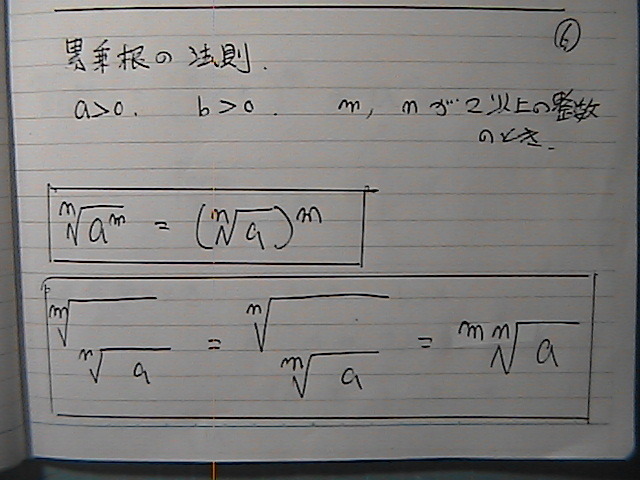 ⑥
累乗根の法則.
a>0. b>0. m, nが2以上の整数
のとき.
ⁿ√aᵐ = (ⁿ√a)ᵐ
ᵐ√ⁿ√a = ⁿ√ᵐ√a = ᵐⁿ√a